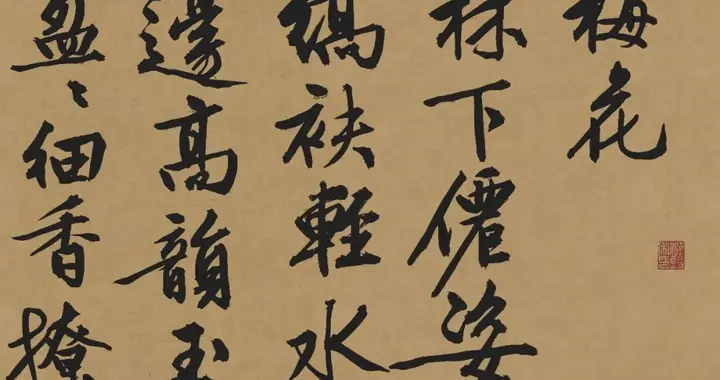 梅花
林下僊姿
縞袂輕水
邊高韻玉
盈〻細香撩